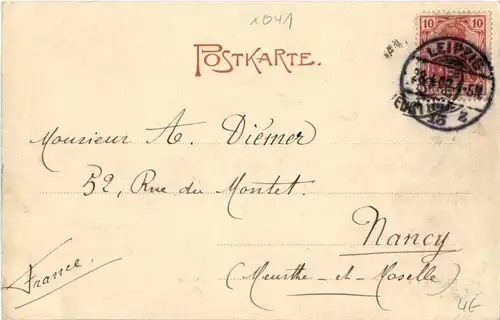 x041
10 10
POSTKARTE.
LEIPZIG
13
Monsieur A. Diémer
52, Rue du Montet.
Nancy
(Meurthe-et-Moselle)
France.
4€